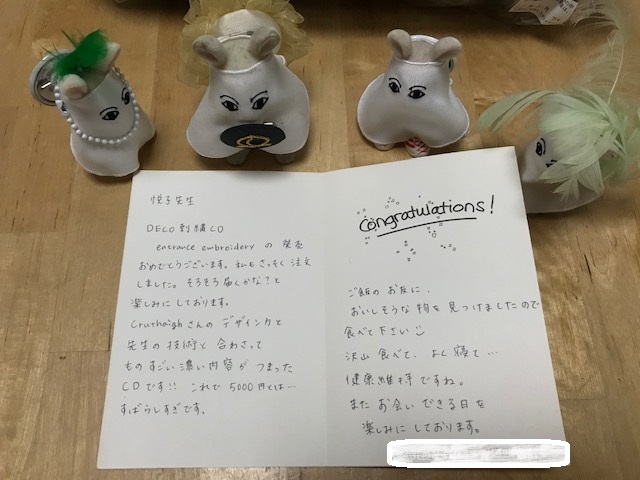 悦子先生
DECO刺繍CD
entrance embroideryの発売
おめでとうございます。私もさっそく注文
しました。そろそろ届くかな?と
楽しみにしております。
Cruthaighさんのデザインと
先生の技術と合わさって
ものすごい濃い内容がつまった
CDです!!これで5000円とは…
すばらしすぎです。
Congratulations!
ご飯のお友に、
おいしそうな物を見つけましたので
食べて下さい
沢山食べて、よく寝て…
健康維持ですね。
またお会いできる日を
楽しみにしております。